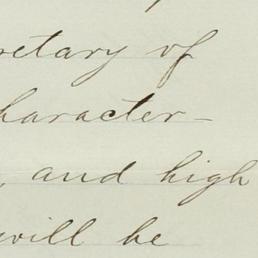 retary of
haracter-
, and high
will be